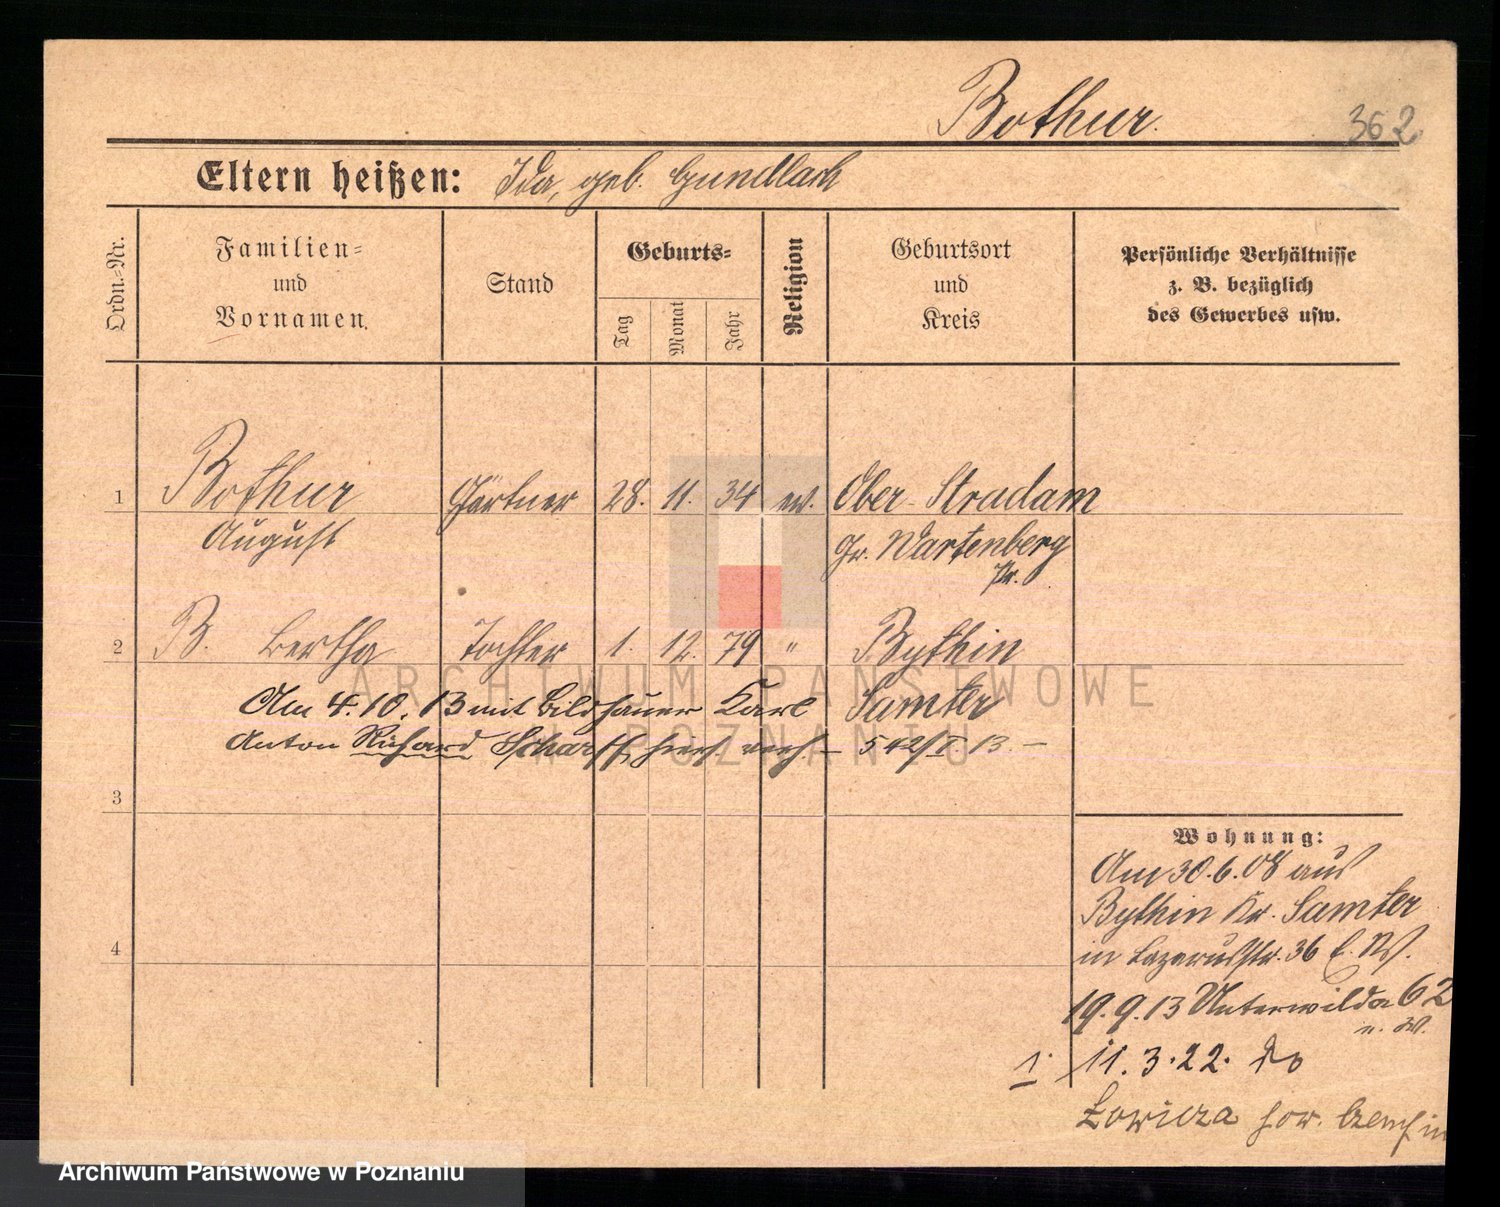 Bothur.
362
Eltern heißen: Ida, geb. Gundlach
Ordn.-Nr.
Familien-
und
Vornamen.
Stand
Geburts-
Tag
Monat
Jahr
Religion
Geburtsort
und
Kreis
Persönliche Verhältnisse
z. B. bezüglich
des Gewerbes usw.
1 Bothur Gärtner 28. 11. 34 ev. Ober-Stradam
August Gr. Wartenberg
Pr.
2 B. Bertha Tochter 1. 12. 79 " Bythin
Am 4.10.13 mit Bildhauer Karl Samter
Anton Richard Scharff hiers. verh. – 542/I. 13. –
3
4
Wohnung:
Am 30.6.08 aus
Bythin Kr. Samter
in Lazarusstr. 36 E. W.
19.9.13 Unterwilda 62
n. W.
1. 11.3.22. do
Łowicza pow.
ARCHIWUM PAŃSTWOWE
W POZNANIU
Archiwum Państwowe w Poznaniu